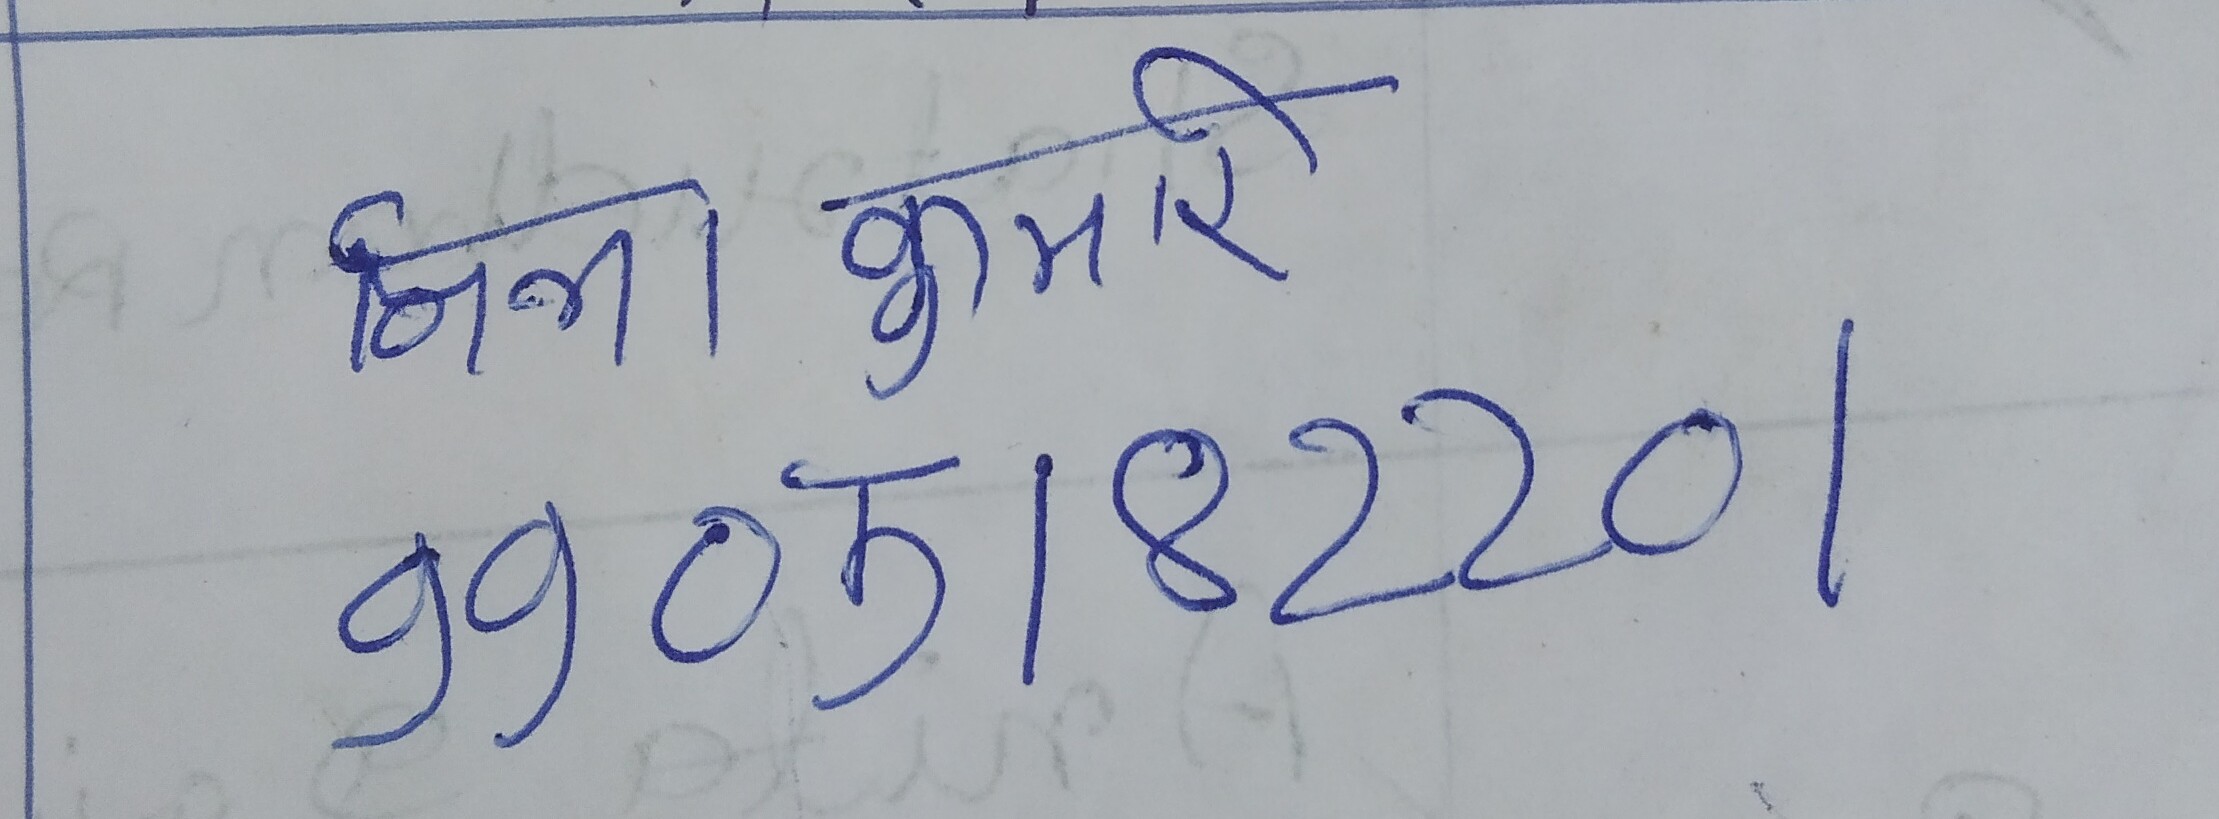 निभा कुमारी
9905182201